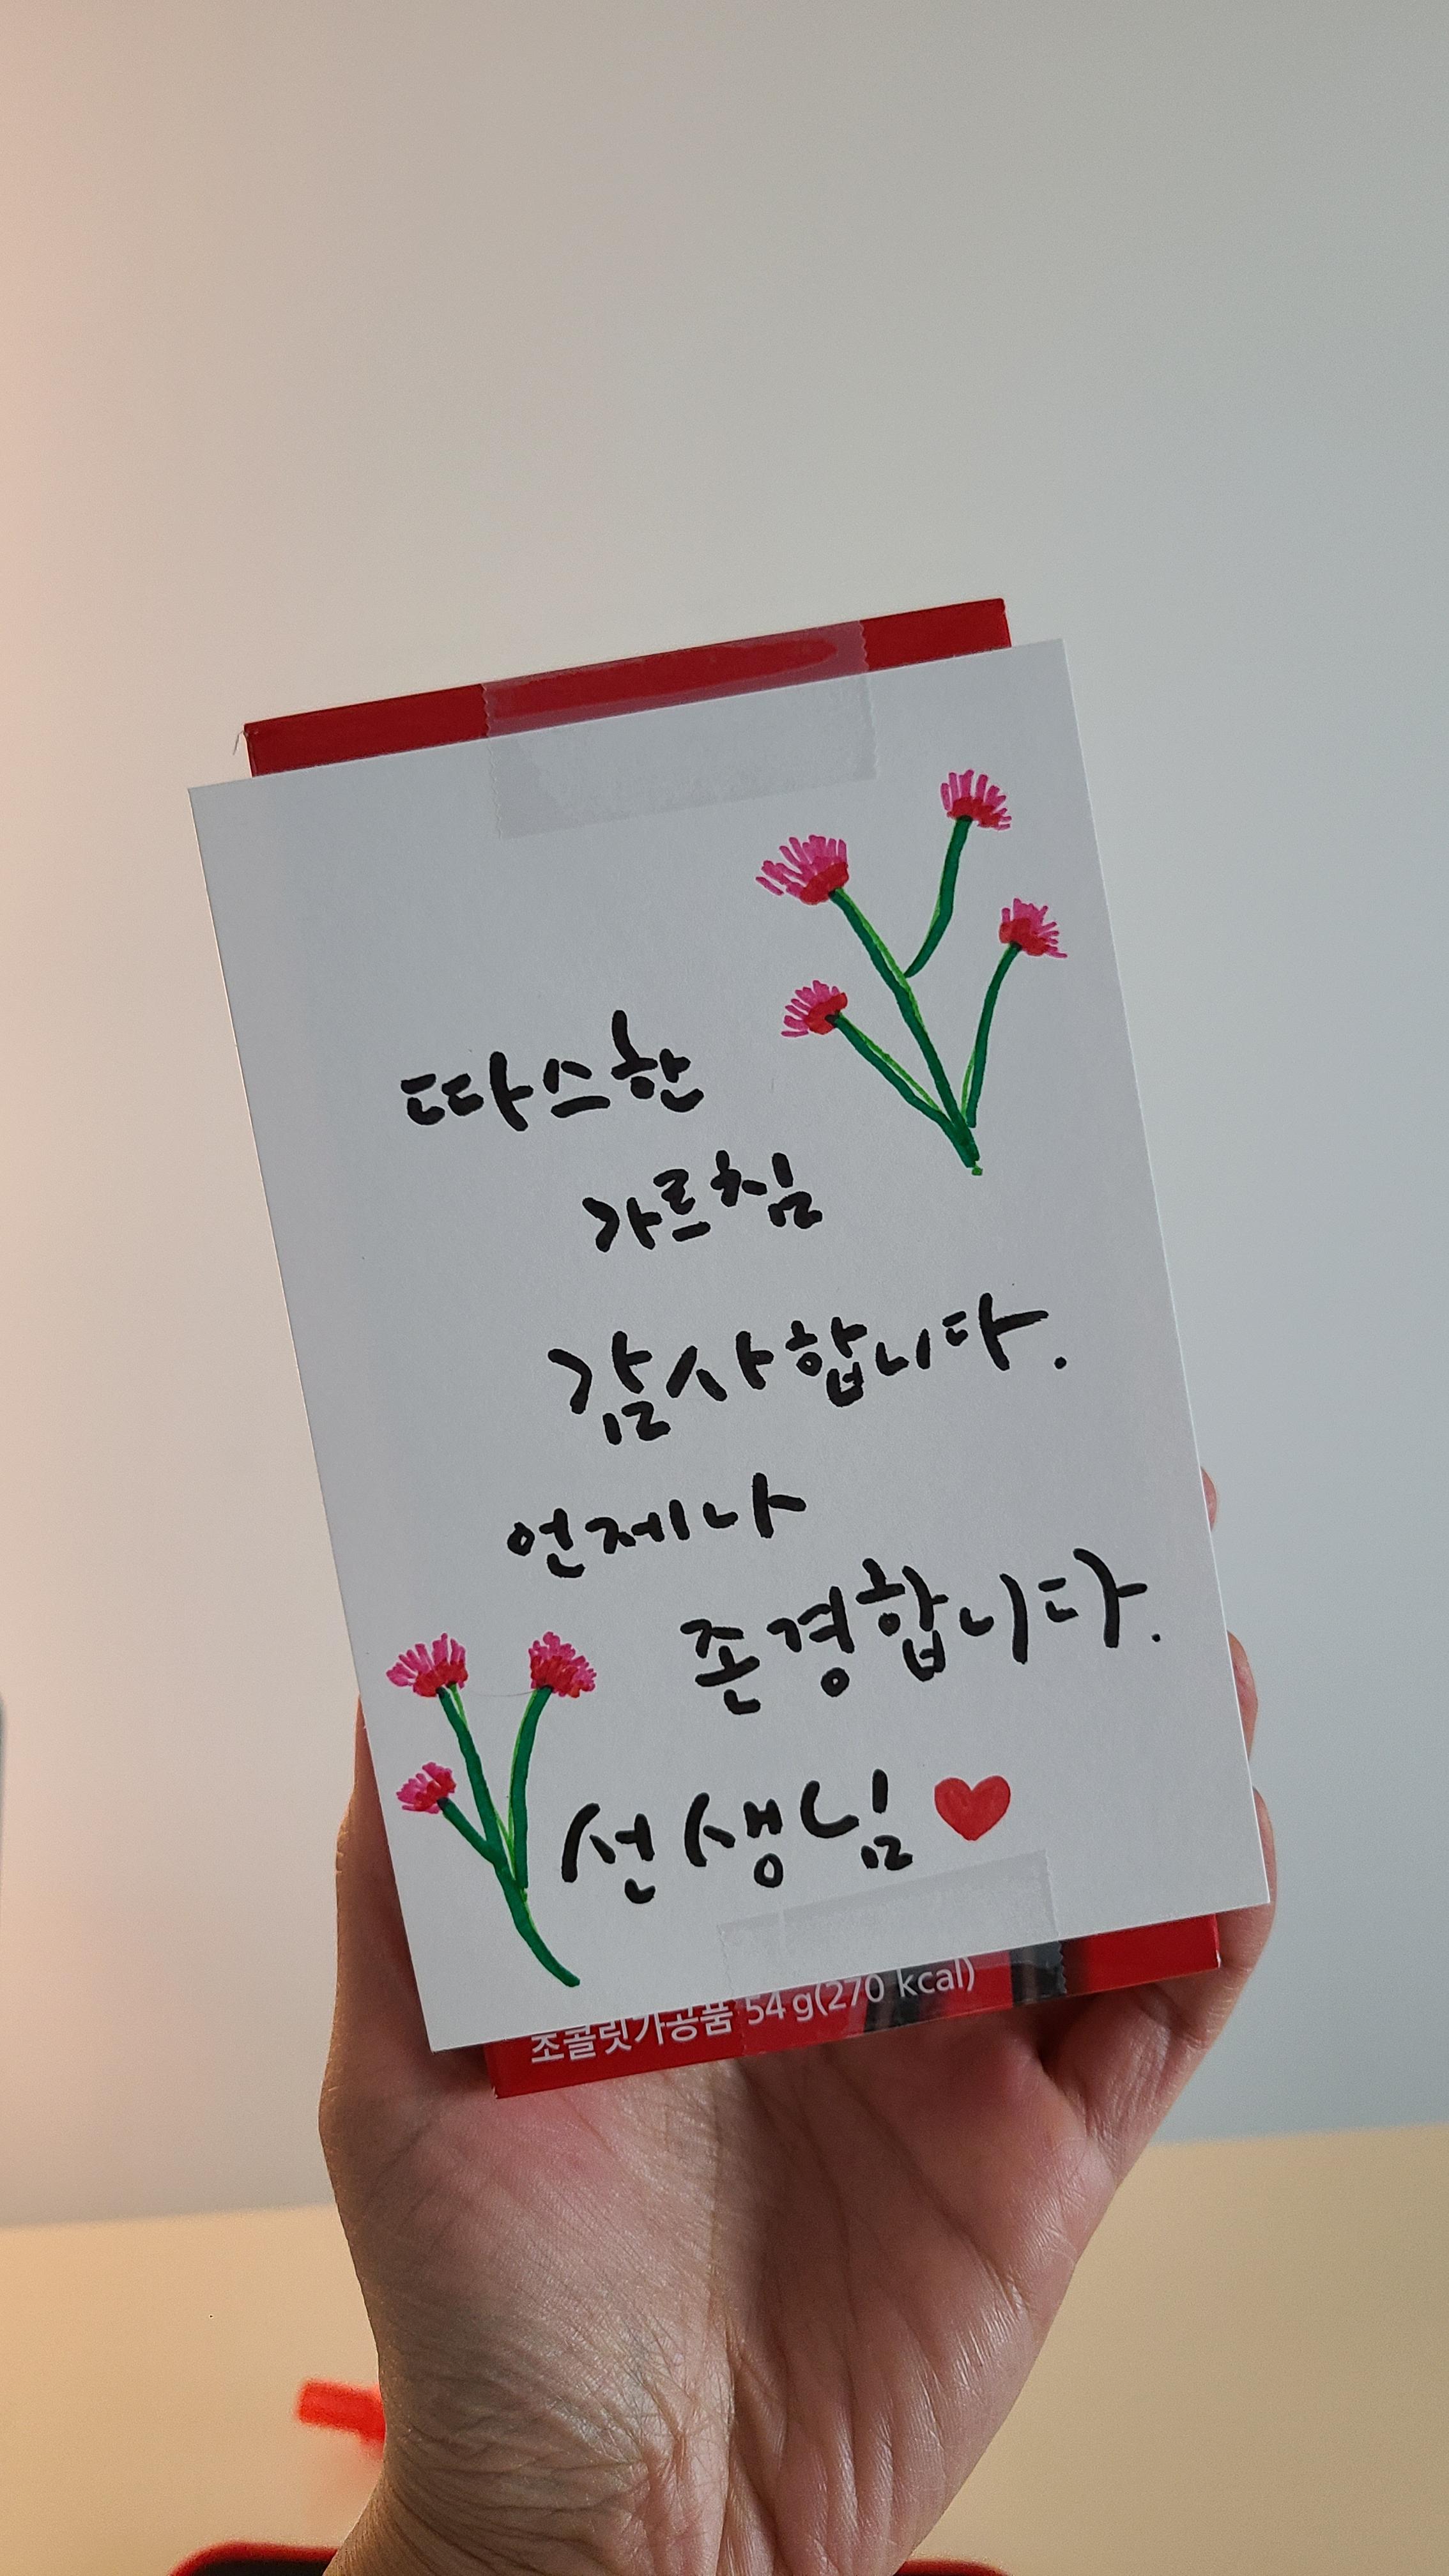 따스한
가르침
감사합니다.
언제나
존경합니다.
선생님
초콜릿가공품 54g(270 kcal)